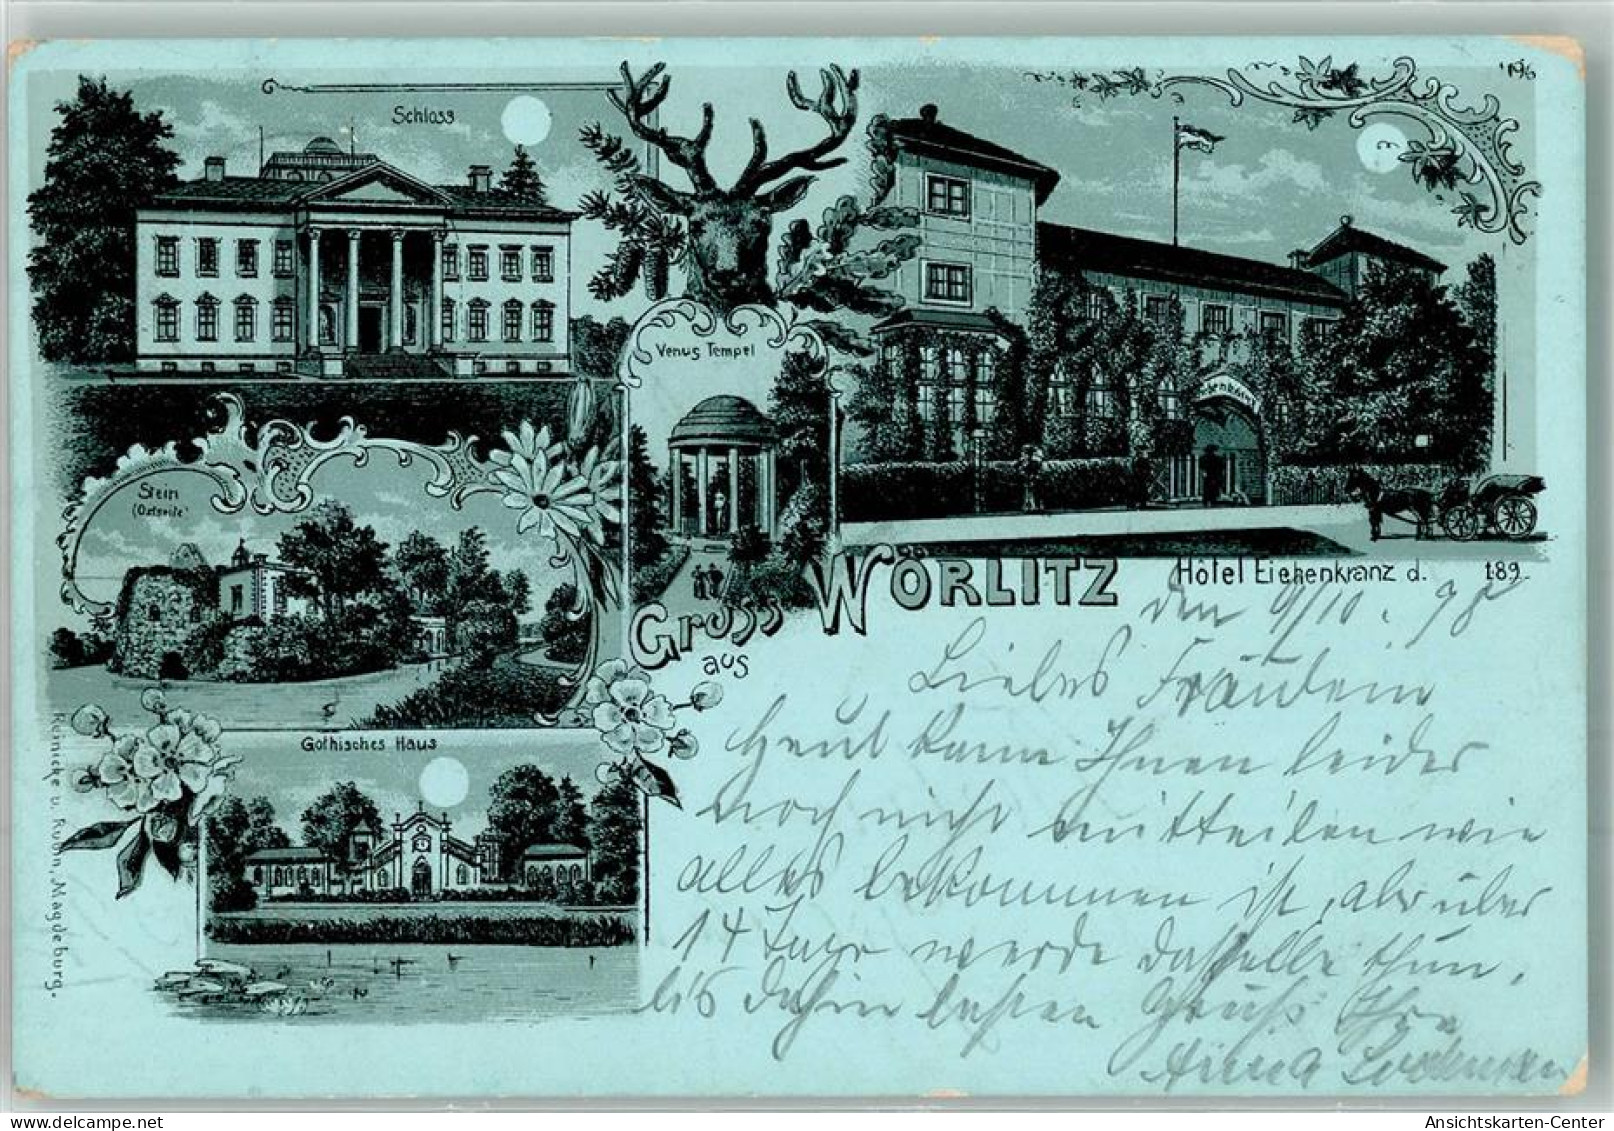 Schloss
'96
Venus Tempel
Stein
(Ostseite)
Gothisches Haus
Gruss
aus
WÖRLITZ
Hôtel Eichenkranz d. 189
den 9/10. 98
Liebes Fräulein
Heut kann Ihnen leider
noch nicht mitteilen wie
alles bekommen ist, aber über
14 Tage werde dasselbe thun,
bis dahin besten Gruß Ihre
Anna
Reinicke u. Rubin, Magdeburg.
Ansichtskarten-Center